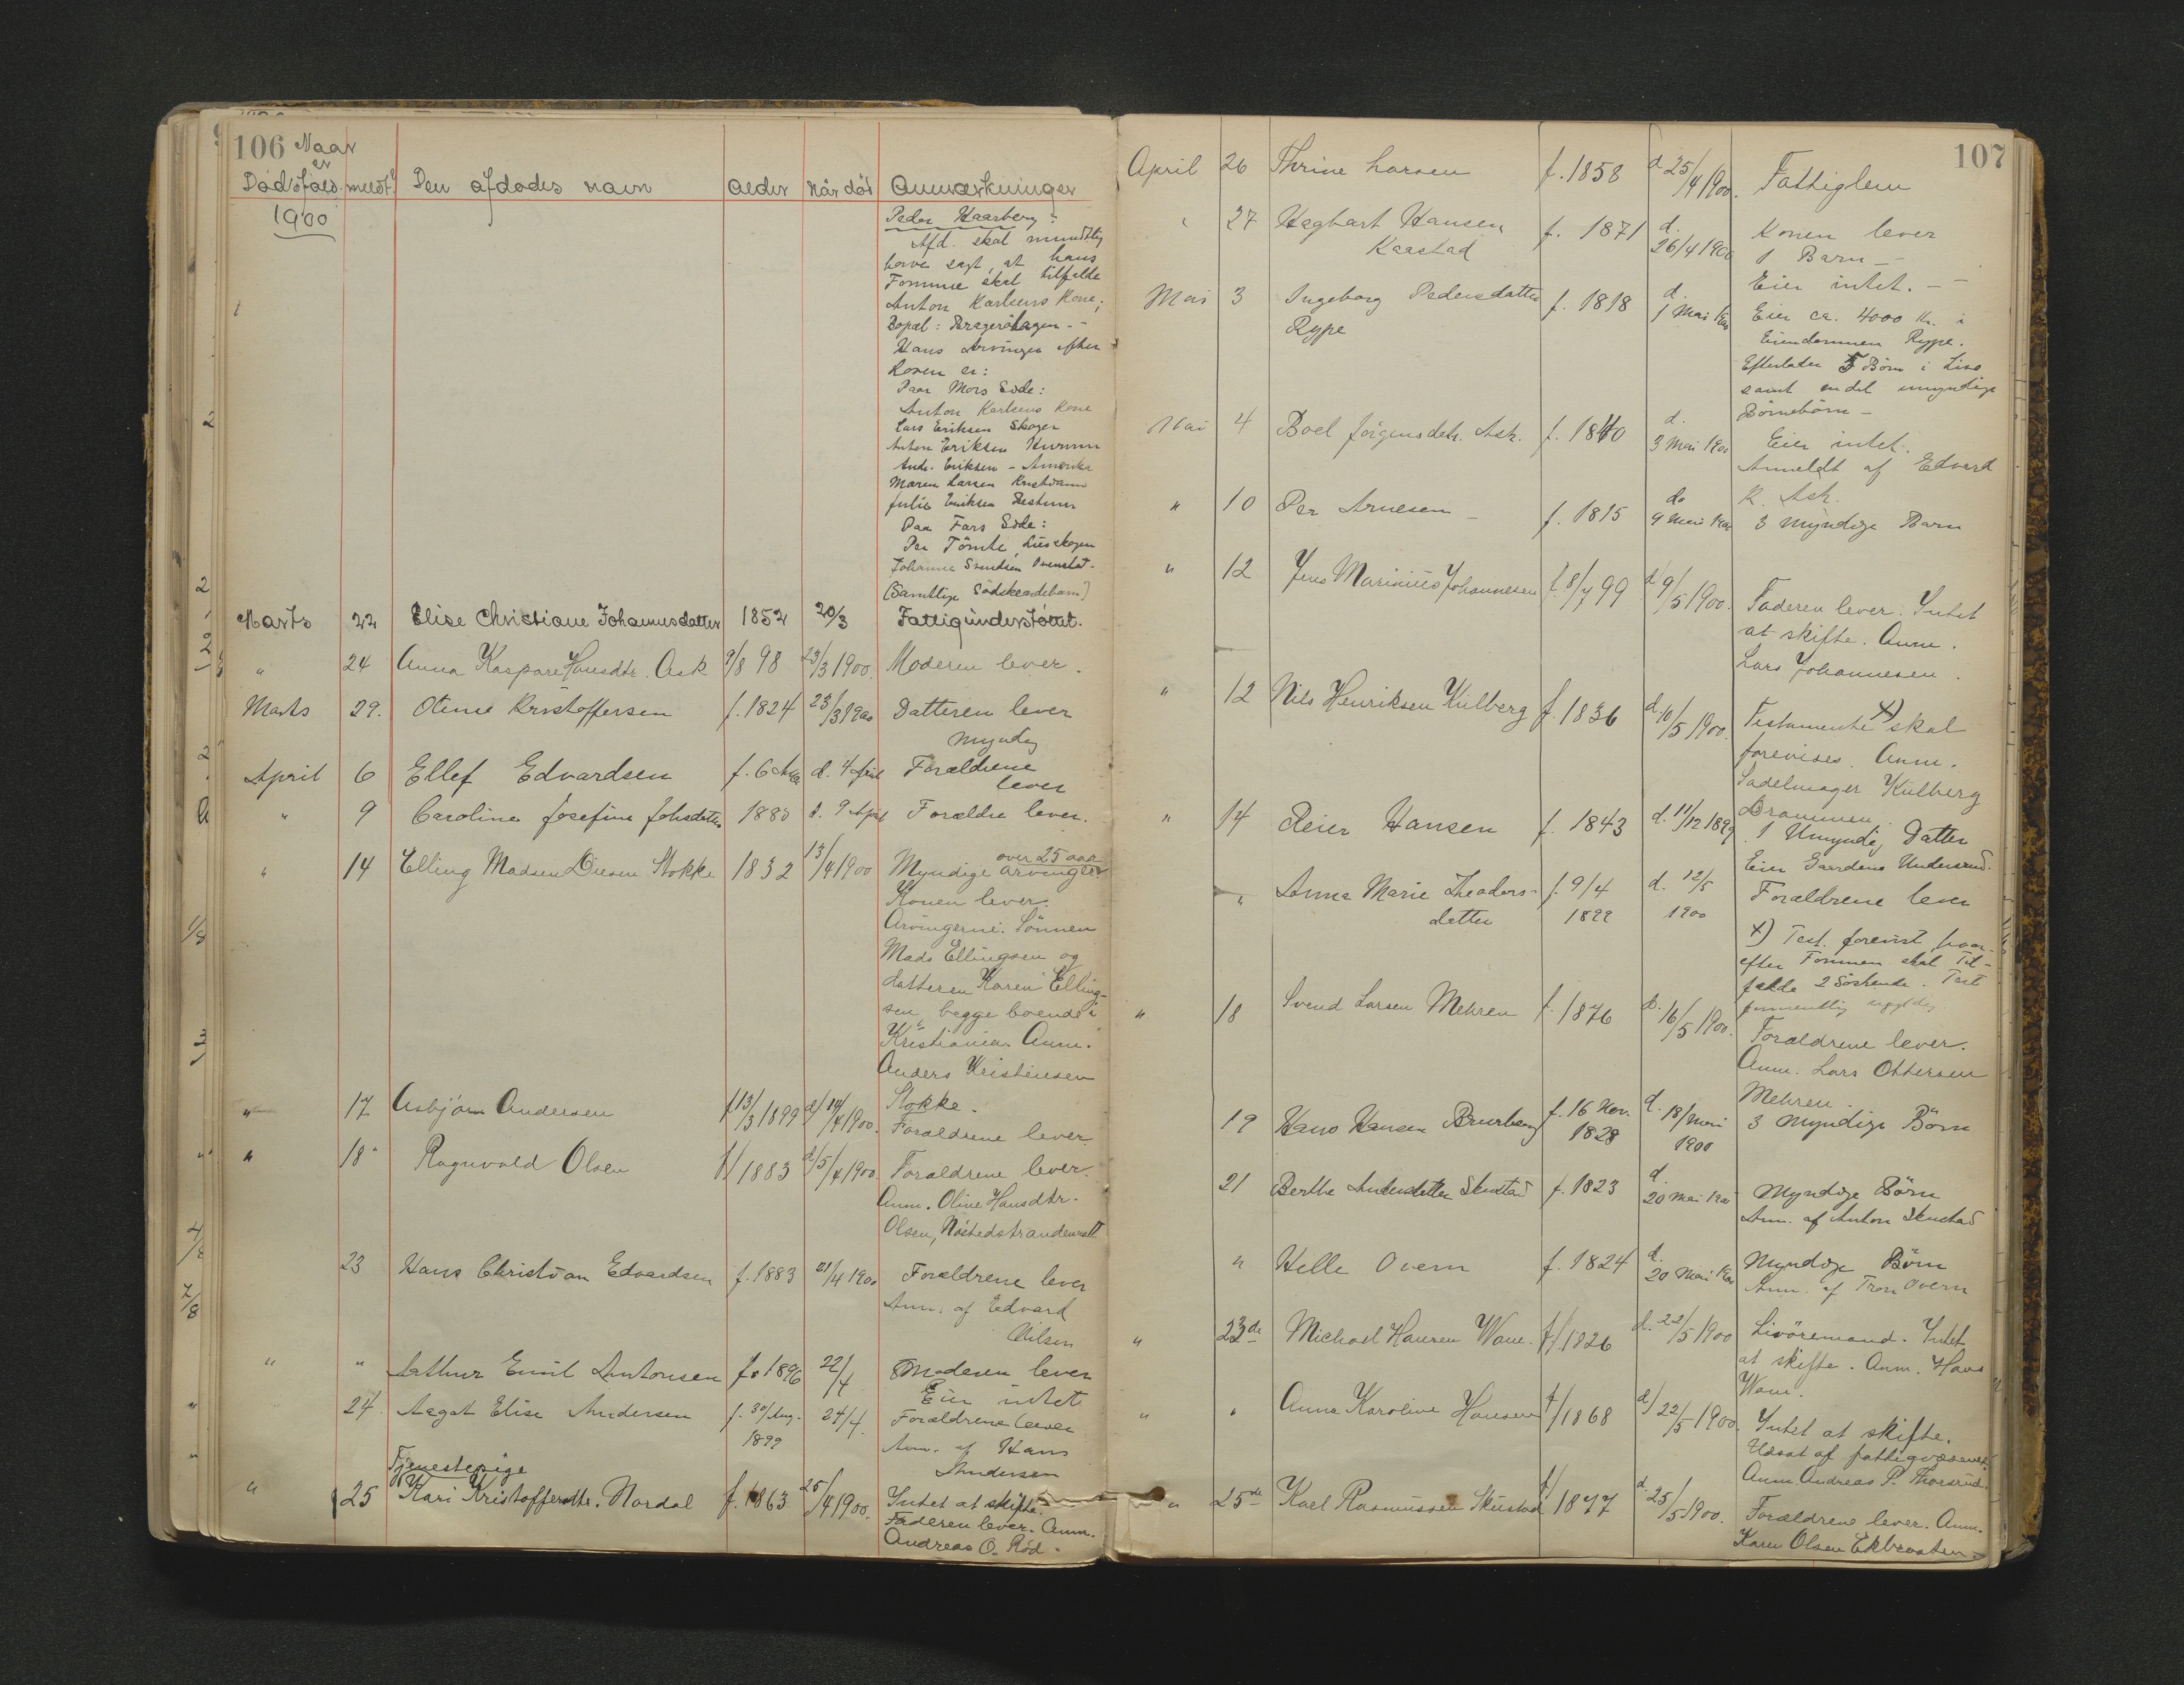 106 Naar
er
Dødsfald meldt? Den afdødes navn Alder Når død Anmærkninger
1900
Peder Haarberg:
Afd. skal mundtlig
have sagt, at hans
Formue skal tilfalde
Anton Karlsens Kone;
Bopæl: Bragerhagen.-
Hans Arvinger efter
Konen er:
Paa Mors Side:
Anton Karlsens Kone
Lars Eriksen Skoger
Anton Eriksen Hurum
Andr. Eriksen - Amerika
Maren Larsen Kristiania
Julie Eriksen
Paa Fars Side:
Per Tömte, Lierskogen
Johanne Svendsen
(Samtlige Södskendebarn)
Marts 22 Elise Christiane Johannesdatter 1852 20/3 Fattigunderstøttet.
" 24 Anna Kaspare Hansdtr. Ask 9/8 98 23/3 1900. Moderen lever.
Marts 29. Otine Kristoffersen f. 1824 23/3 1900 Datteren lever
myndig
April 6 Ellef Edvardsen f. 6 d. 4 April Forældrene
lever
" 9 Caroline Josefine Johsdatter 1880 d. 9 April Forældre lever.
" 14 Elling Madsen Diesen Stokke 1832 13/4 1900 Myndige over 25 aar arvinger
Konen lever.
Arvingerne: Sönnen
Mads Ellingsen og
datteren Karen Elling-
sen, begge boende i
Kristiania. Anm.
Anders Kristensen
Stokke.
" 17 Asbjørn Andersen f 13/3 1899 d/ 14/4 1900. Forældrene lever.
" 18 Ragnvald Olsen f/ 1883 d/ 15/4 1900. Forældrene lever.
Anm. Oline Hansdtr.
Olsen, Nøstedstranden
23 Hans Christian Edvardsen f. 1883 21/4 1900 Forældrene lever
Anm. af Edvard
Nilsen
" " Arthur Emil Antonsen f. 1896 22/4 Moderen lever
Eier intet
" 24. Aagot Elise Andersen f. 30/Aug. 24/4. Forældrene lever
1899 Anm. af Hans
Andersen
Tjenestepige
" 25 Kari Kristoffersdtr. Nordal f. 1863 25/4 1900. Intet at skifte.
Faderen lever. Anm.
Andreas O. Rød.
107
April 26 Thrine Larsen f. 1858 d. 25/4 1900. Fattiglem
" 27 Hagbart Hansen f. 1871 d. Konen lever
Kaastad 26/4 1900 1 Barn -
Eier intet. -
Mai 3 Ingeborg Pedersdatter f. 1818 d. Eier ca. 4000 Kr. i
Rype 1 Mai 1900 Eiendommen Rype.
Efterlader 5 Börn i Live
samt endel umyndige
Börnebörn -
Mai 4 Boel Jörgensdtr. Ask. f. 1840 d. Eier intet.
3 Mai 1900 Anmeldt af Edvard
R. Ask.
" 10 Per Arnesen - f. 1815 d. 3 myndige Barn
9 Mai 1900
" 12 Jens Marinius Johannesen f. 8/7 99 d/ 9/5 1900. Faderen lever. Intet
at skifte. Anm.
Lars Johannesen.
" 12 Nils Henriksen Kulberg f. 1836 d. 10/5 1900. Testamente X) skal
forevises. Anm.
Sadelmager Kulberg
Drammen
" 14 Reier Hansen f. 1843 d. 11/12 1899 1 Umyndig Datter
Eier Gaardene
" Anna Marie Theodors- f. 9/4 d. 12/5 Forældrene lever
datter 1899 1900
X) Test. forevist, hvor-
efter Formuen skal Til-
falde 2 Söskende. Test
formentlig ugyldig
" 18 Svend Larsen Mehren f. 1876 d. 16/5 1900. Forældrene lever.
Anm. Lars Ottersen
Mehren.
19 Hans Hansen Brurberg f. 16 Nov. d. 18/Mai 3 Myndige Börn
1828 1900
21 Berthe Andersdatter Skustad f. 1823 d. Myndige Börn
20 Mai 1900 Anm. af Anton Skustad
" Helle Overn f. 1824 d. Myndige Börn
20 Mai 1900 Anm. af Tron Overn
" 23de Michael Hansen Wam. f/ 1826 d. 22/5 1900 Livöremand. Intet
at skifte. Anm. Hans
Wam.
" " Anna Karoline Hansen f/ 1868 d/ 22/5 1900. Intet at skifte.
Udsat af fattigvæsenet.
Anm Andreas P. Thorsrud.
" 25de Karl Rasmussen Skustad f/ 1877 d. 25/5 1900. Forældrene lever. Anm.
Karen Olsen Ekbraaten.